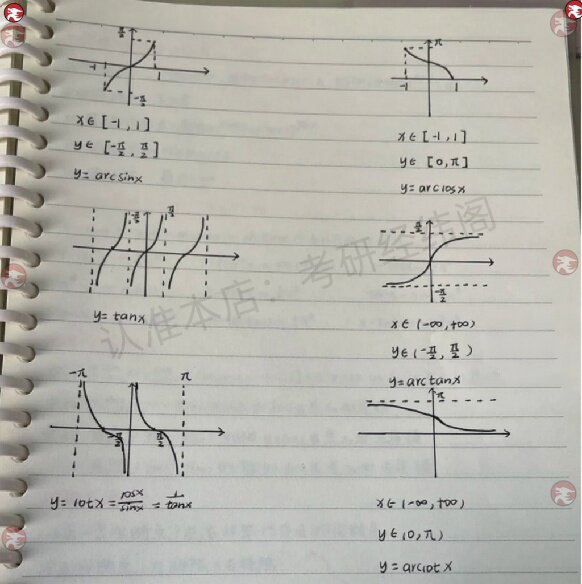 π/2
-1
1
-π/2
x∈[-1,1]
y∈[-π/2,π/2]
y=arcsinx
π
-1
1
x∈[-1,1]
y∈[0,π]
y=arccosx
-π/2
π/2
y=tanx
π/2
-π/2
x∈(-∞,+∞)
y∈(-π/2,π/2)
y=arctanx
-π
π
-π/2
π/2
y=cotx=cosx/sinx=1/tanx
π
x∈(-∞,+∞)
y∈(0,π)
y=arccotx
认准本店：考研经书阁